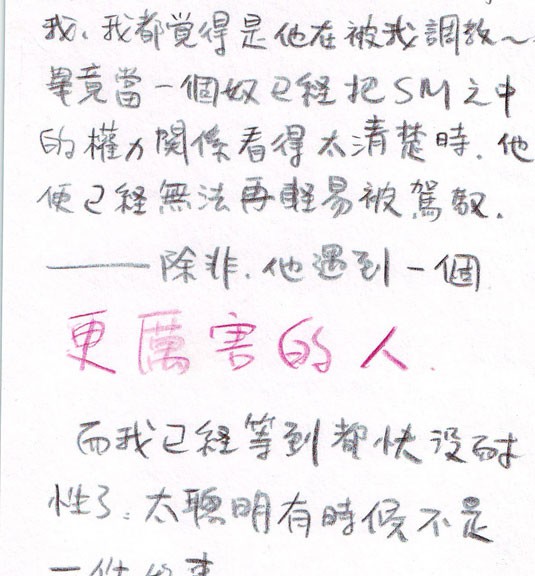 我、我都覺得是他在被我調教～
畢竟當一個奴已経把SM之中
的權力關係看得太清楚時．他
便已経無法再輕易被駕馭．
——除非．他遇到一個
更厲害的人．
而我已経等到都快沒耐
性了．太聰明有時候不是
一件